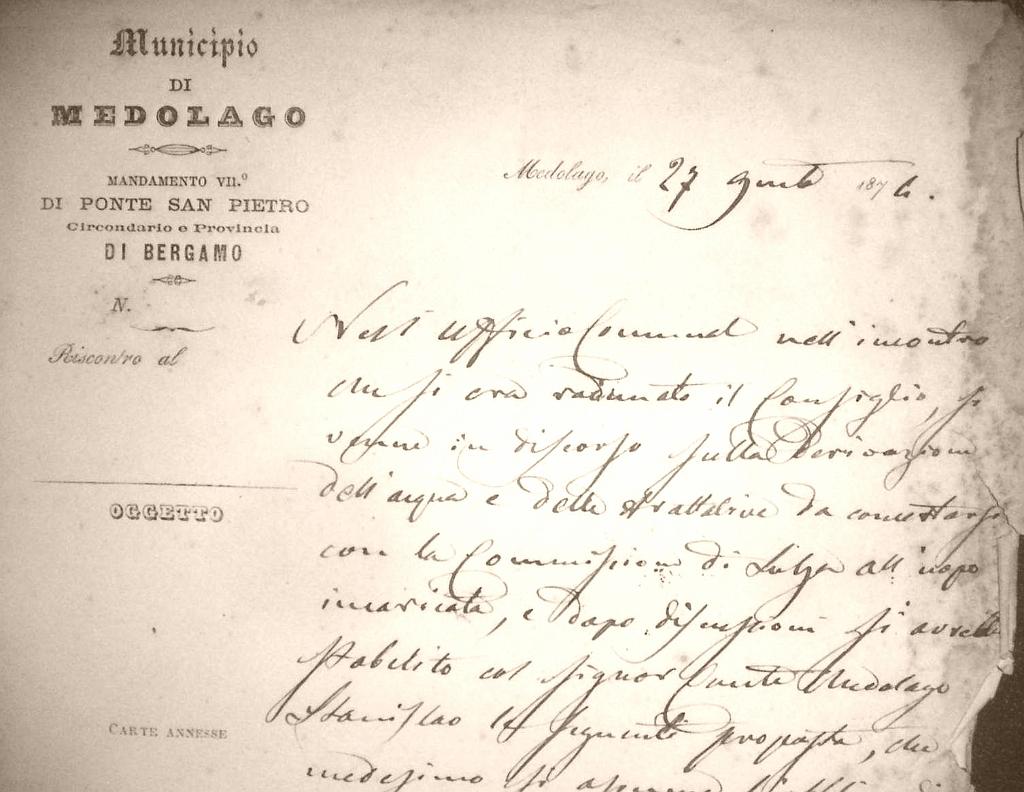 Municipio
DI
MEDOLAGO
MANDAMENTO VII.º
DI PONTE SAN PIETRO
Circondario e Provincia
DI BERGAMO
N.
Riscontro al
OGGETTO
CARTE ANNESSE
Medolago, il 27 187
Nell' Ufficio Comunal nell' incontro
che si era radunato il Consiglio, si
venne in discorso sulla derivazione
dell'acqua e delle trattative da
con la Commissione di all' uopo
incaricata, e dopo discussioni si avrebbe
stabilito col Signor Conte Medolago
Stanislao la seguente proposta, che
medesimo si